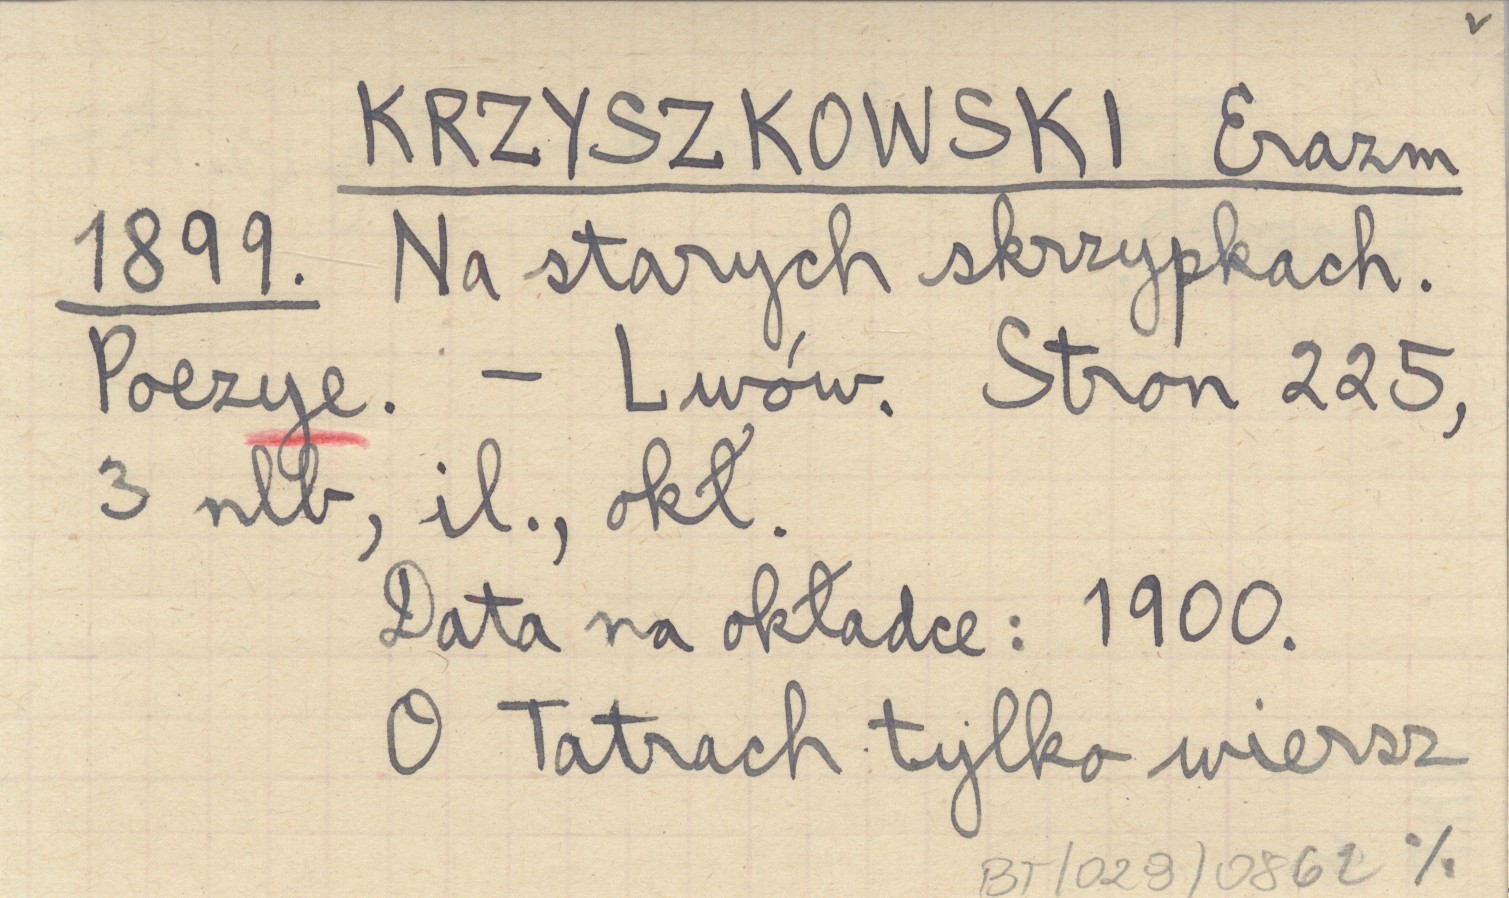 KRZYSZKOWSKI Erazm
1899. Na starych skrzypkach.
Poezye. - Lwów. Stron 225,
3 nlb, il., okł.
Data na okładce: 1900.
O Tatrach tylko wiersz
BT/029/0862 ·/.